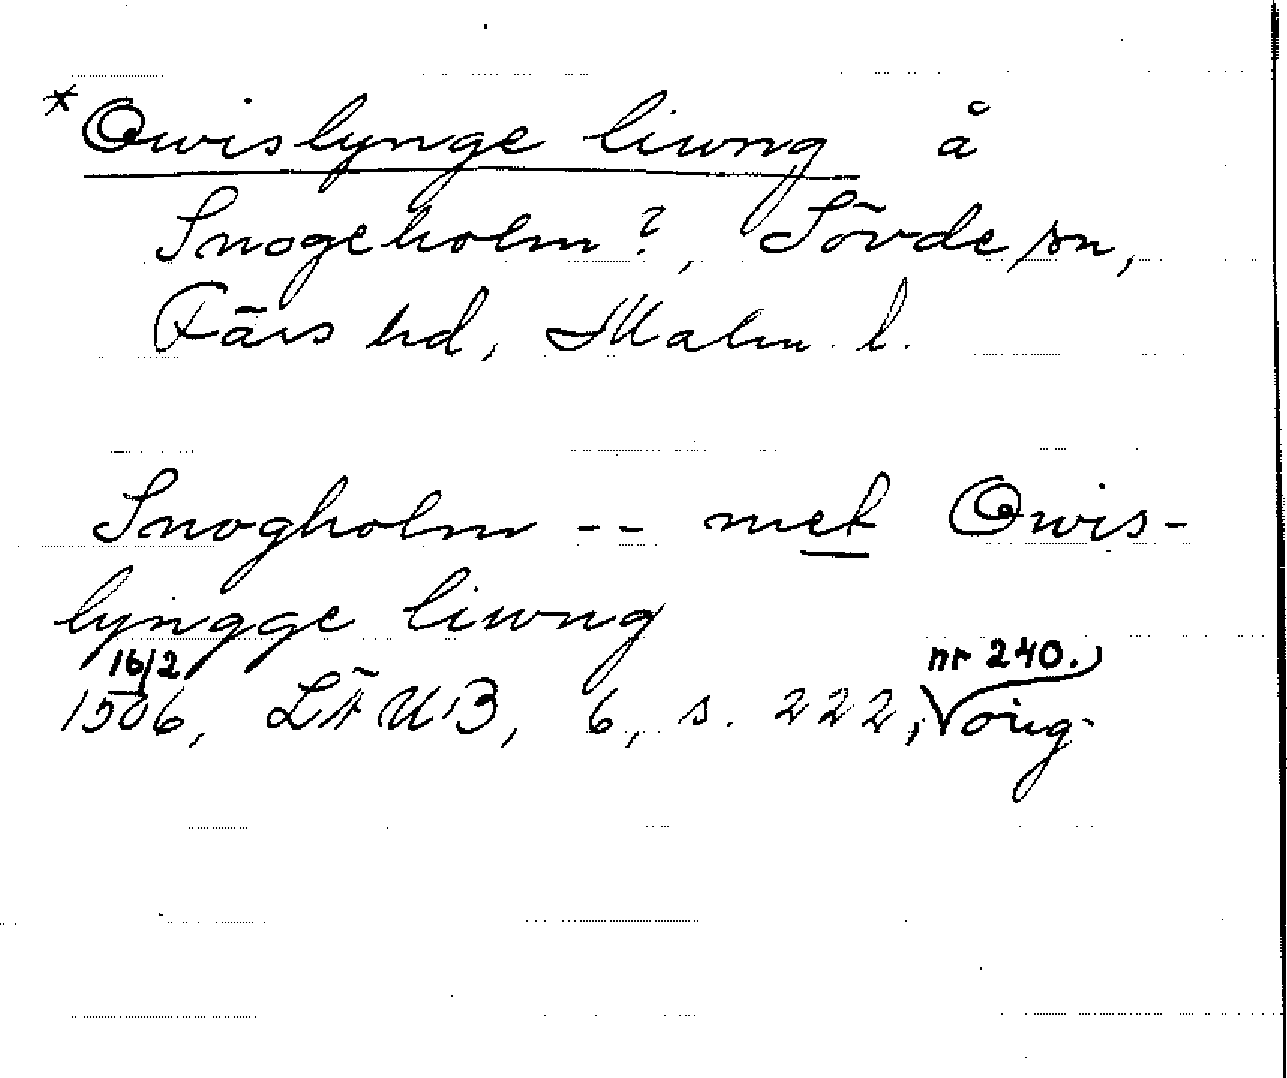 *Qwislynge liwng å
Snogeholm?, Sövde sn,
Färs hd, Malm. l.
Snogholm -- met Qwis-
lyngge liwng
16/2 nr 240.
1506, LÄUB, 6, s. 222, orig.